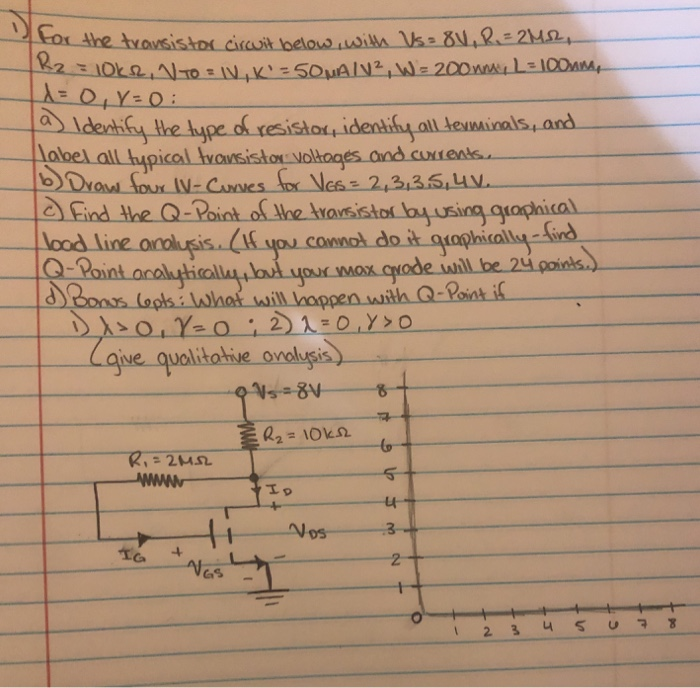 1) For the transistor circuit below, with Vs = 8V, R1 = 2MΩ,
R2 = 10kΩ, VTO = 1V, K' = 50μA/V², W = 200nm, L = 100nm,
λ = 0, γ = 0 :
a) Identify the type of resistor, identify all terminals, and
label all typical transistor voltages and currents.
b) Draw four IV-Curves for VGS = 2, 3, 3.5, 4V.
c) Find the Q-Point of the transistor by using graphical
load line analysis. (If you cannot do it graphically - find
Q-Point analytically, but your max grade will be 24 points.)
d) Bonus 6pts: What will happen with Q-Point if
1) λ > 0, γ = 0 ; 2) λ = 0, γ > 0
(give qualitative analysis)
Vs = 8V
R2 = 10kΩ
R1 = 2MΩ
ID
+
VDS
-
IG
+
VGS
-
8
7
6
5
4
3
2
1
0
1 2 3 4 5 6 7 8